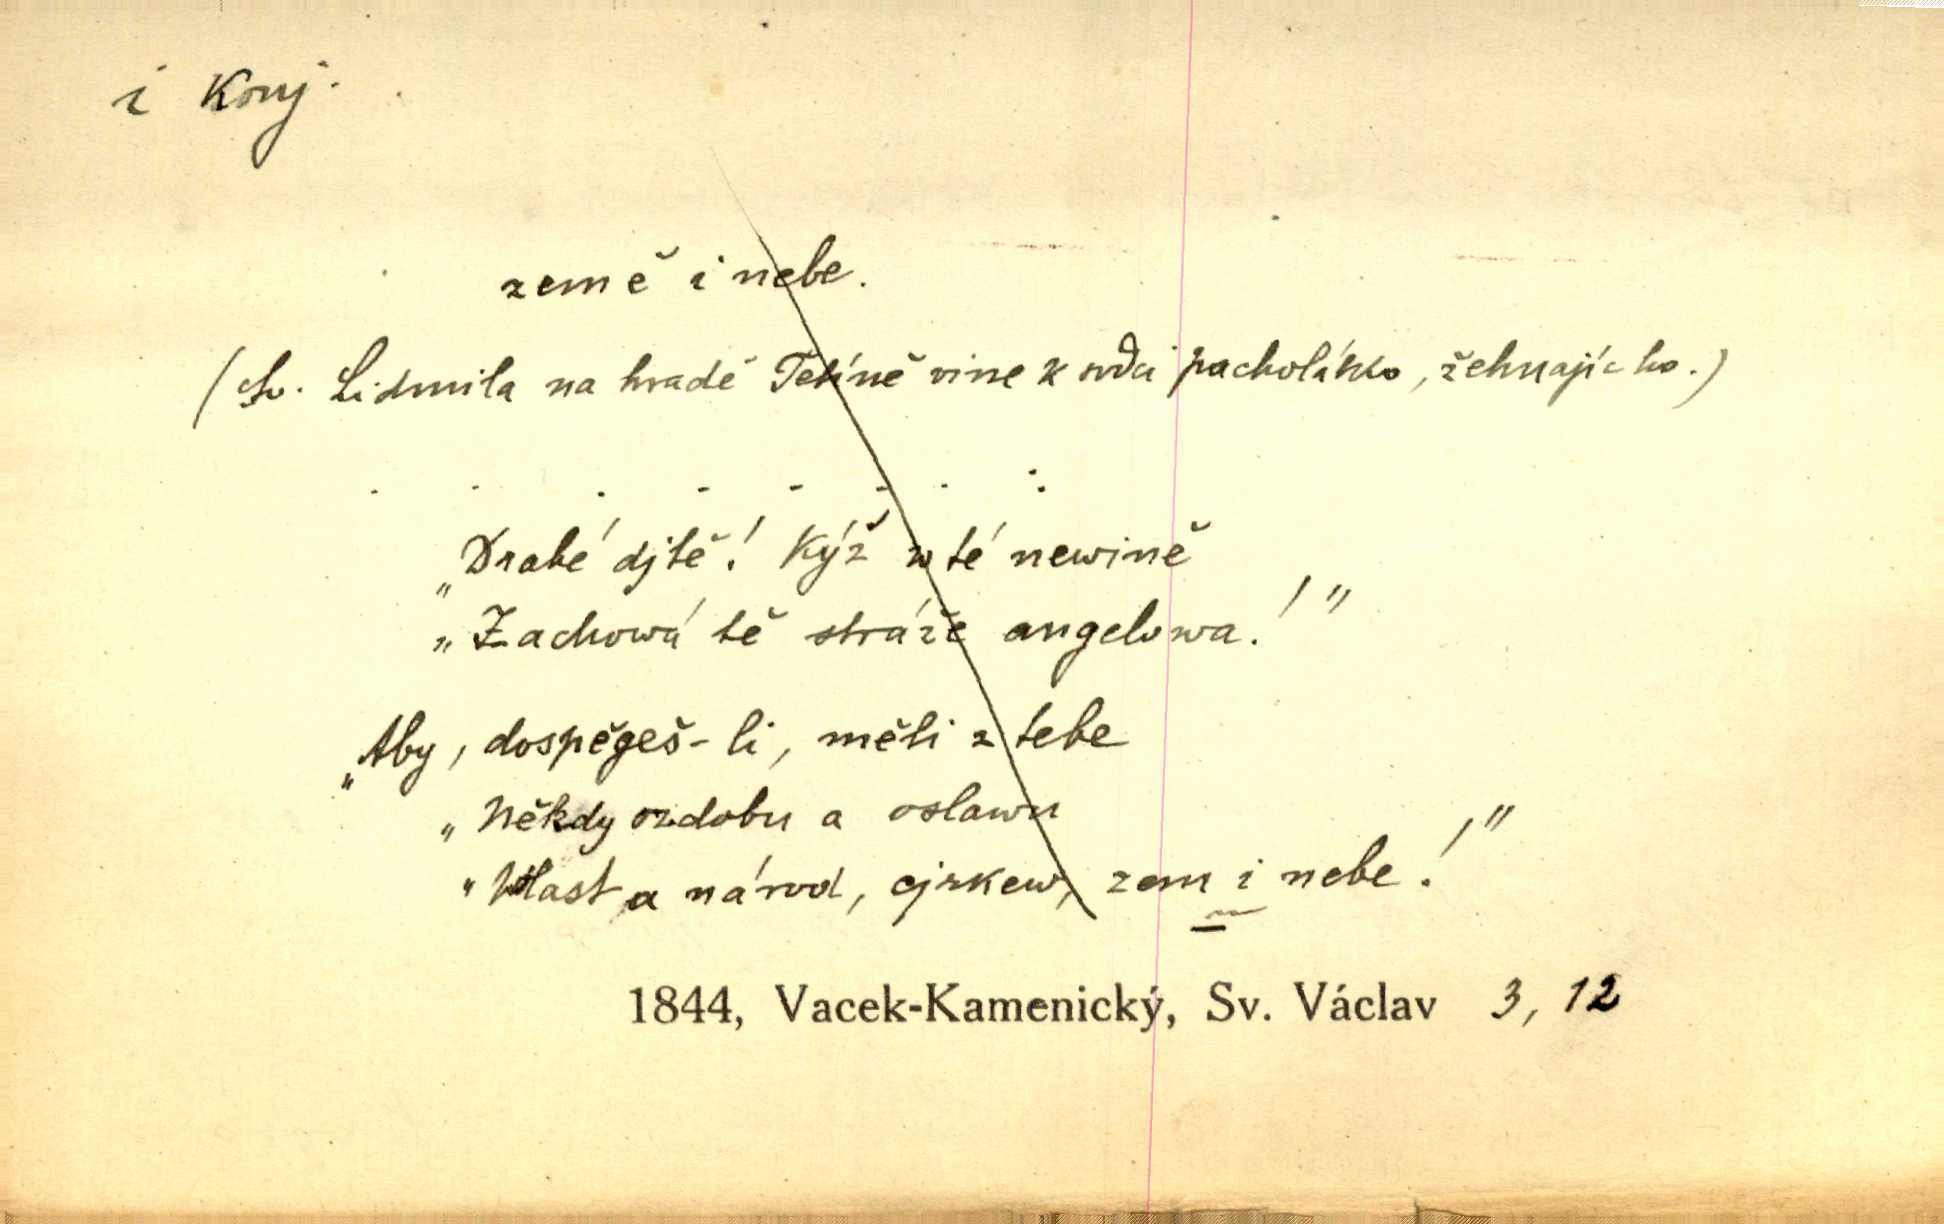 i Konj.
země i nebe.
(Sv. Lidmila na hradě Tetíně vine k srdci pacholátko, žehnajíc ho.)
. . . . . . . :
„Drahé djtě! Kýž w té newině
„Zachowá tě stráže angelowa!"
„Aby, dospěgeš-li, měli z tebe
„Někdy ozdobu a oslawu
„Wlast a národ, cjrkew, zem i nebe!"
1844, Vacek-Kamenický, Sv. Václav 3, 12